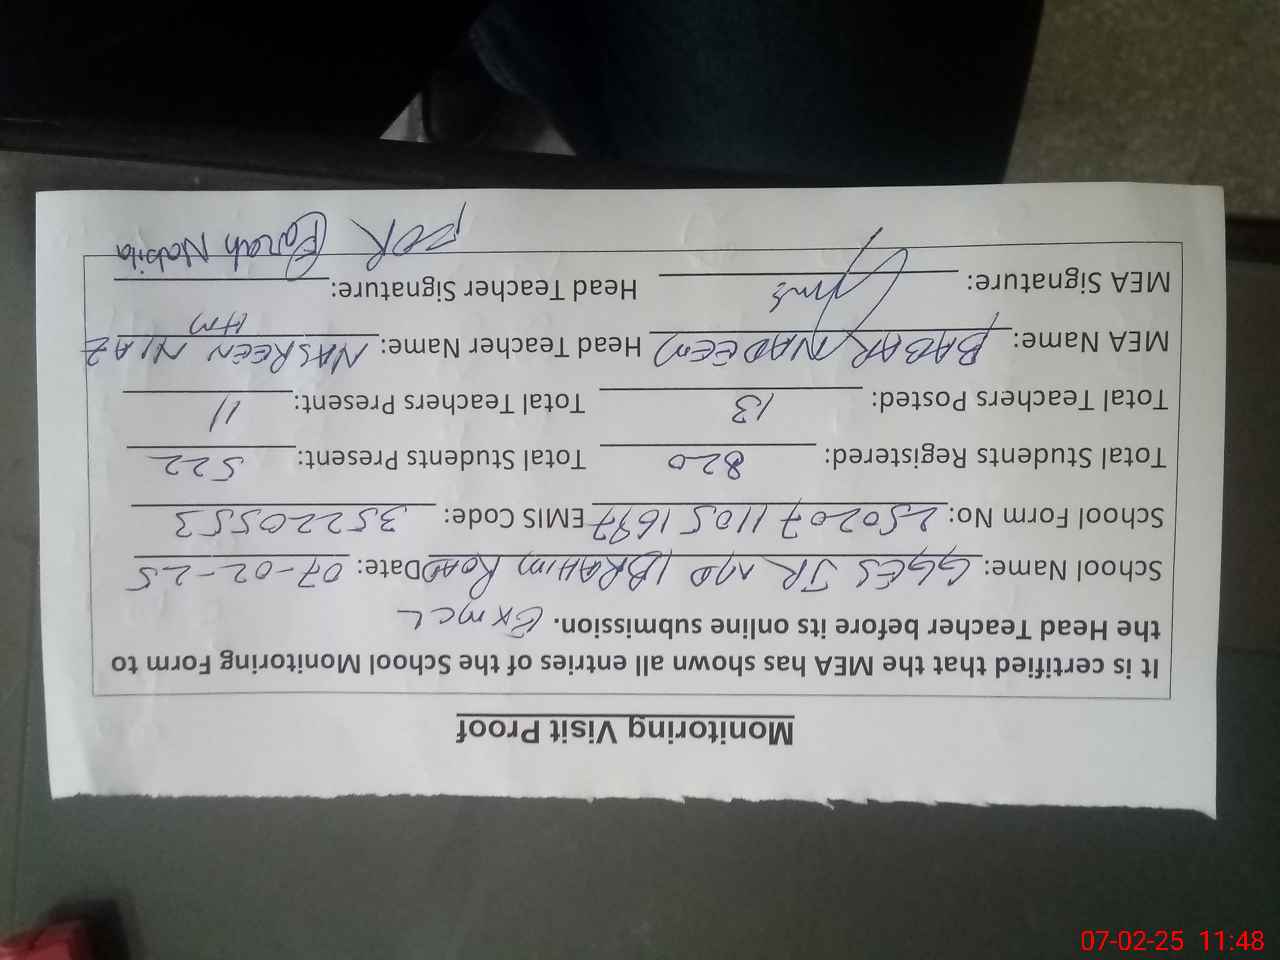 Monitoring Visit Proof
It is certified that the MEA has shown all entries of the School Monitoring Form to
the Head Teacher before its online submission. ExMCL
School Name: GGES JR MD IBRAHIM ROAD Date: 07-02-25
School Form No: 25020711051697 EMIS Code: 35220553
Total Students Registered: 820 Total Students Present: 522
Total Teachers Posted: 13 Total Teachers Present: 11
MEA Name: BABAR NADEEM Head Teacher Name: NASREEN NIAZ
HM
MEA Signature: Head Teacher Signature:
FOR Farah Nabila
07-02-25 11:48